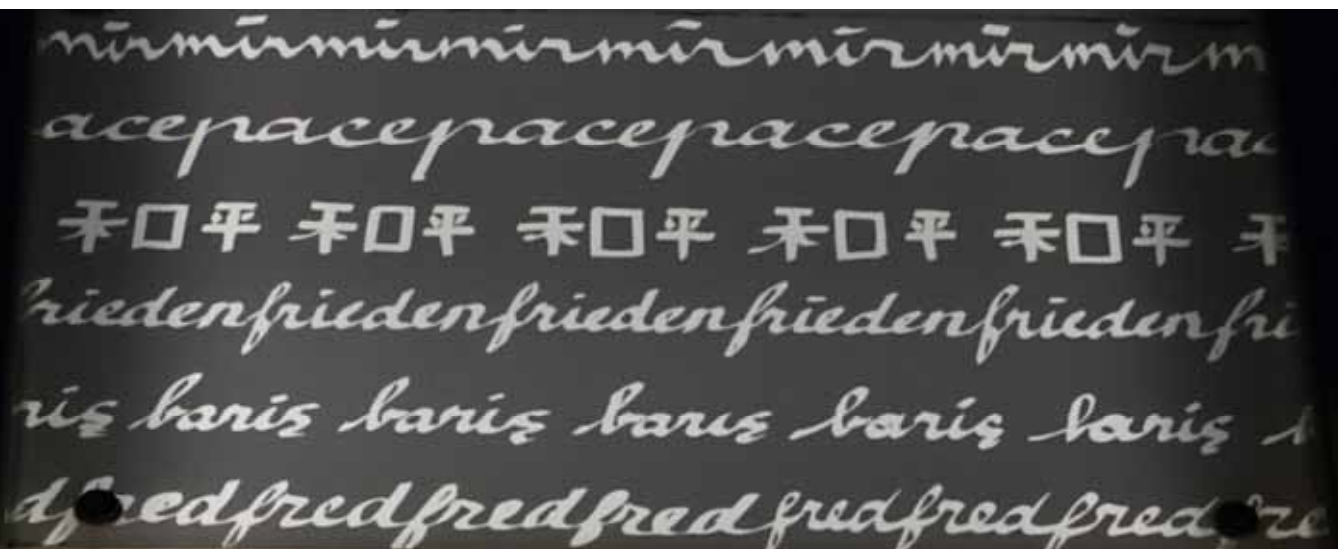 mirmirmirmirmirmirmirmirm
acepacepacepacepacepac
和平 和平 和平 和平 和平 禾
riedenfriedenfriedenfriedenfriedenfri
riş bariş bariş barış bariş bariş b
dfredfredfredfredfredfredfredfre